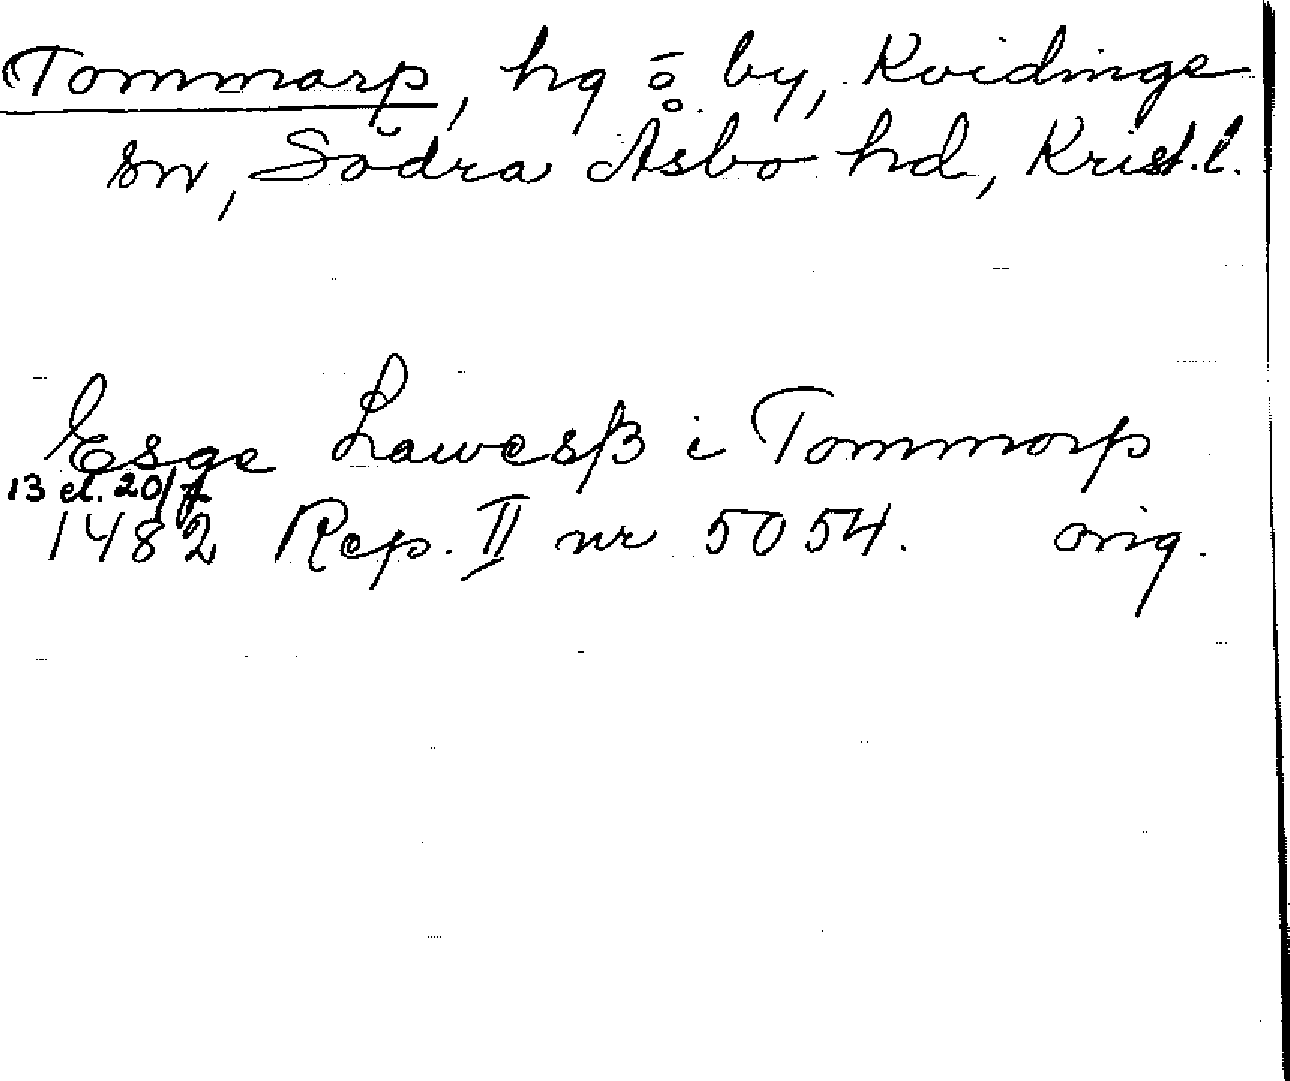 Tommarp, hg o by, Kvidinge
sn, Södra Åsbo hd, Krist.l.
Esge Lawesß i Tommorp
13 el. 20/7
1482 Rep. II nr 5054. orig.